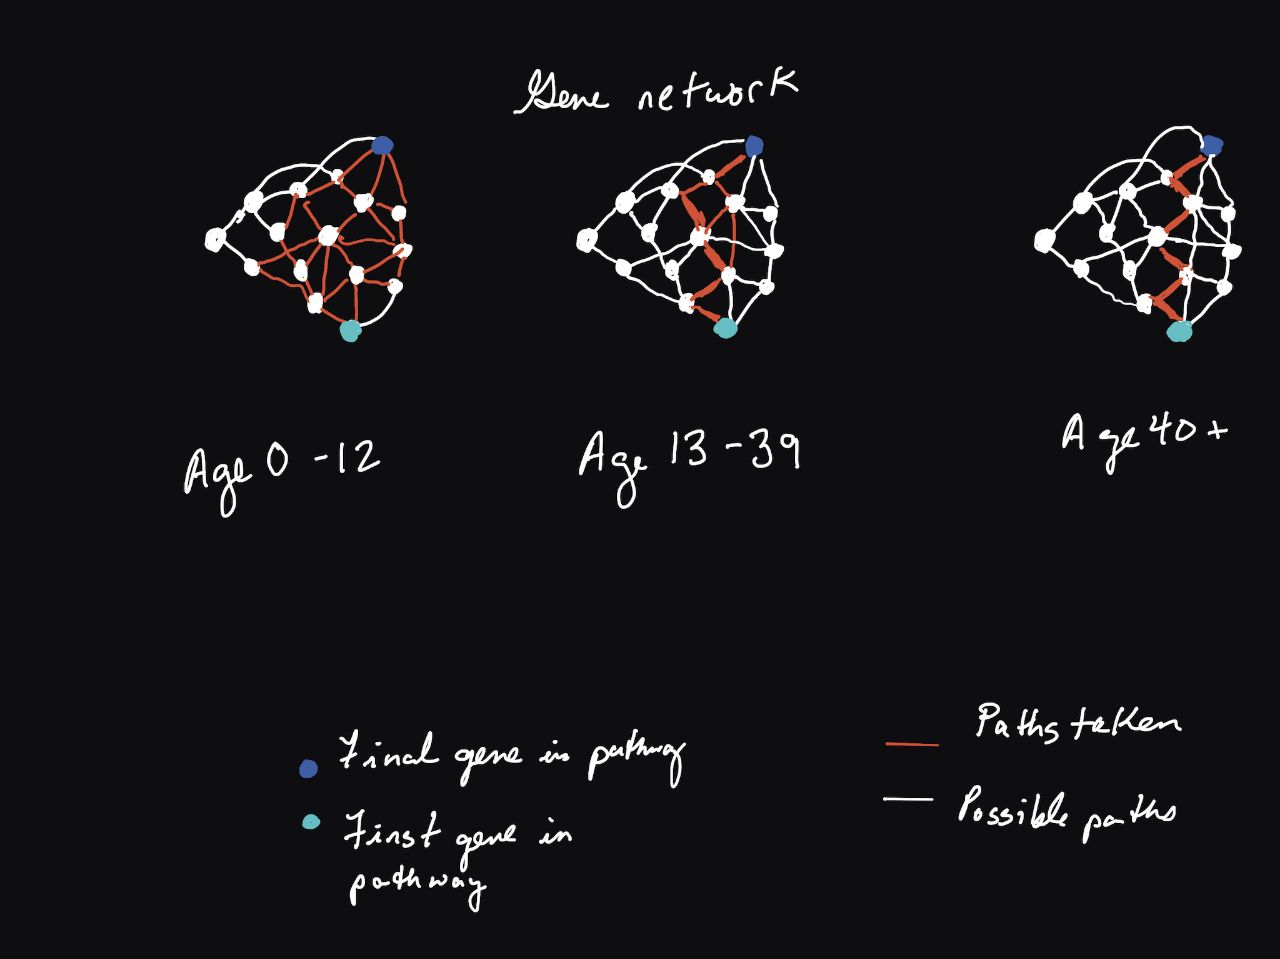 Gene network
Age 0 -12
Age 13 -39
Age 40 +
Final gene in pathway
First gene in
pathway
Paths taken
Possible paths